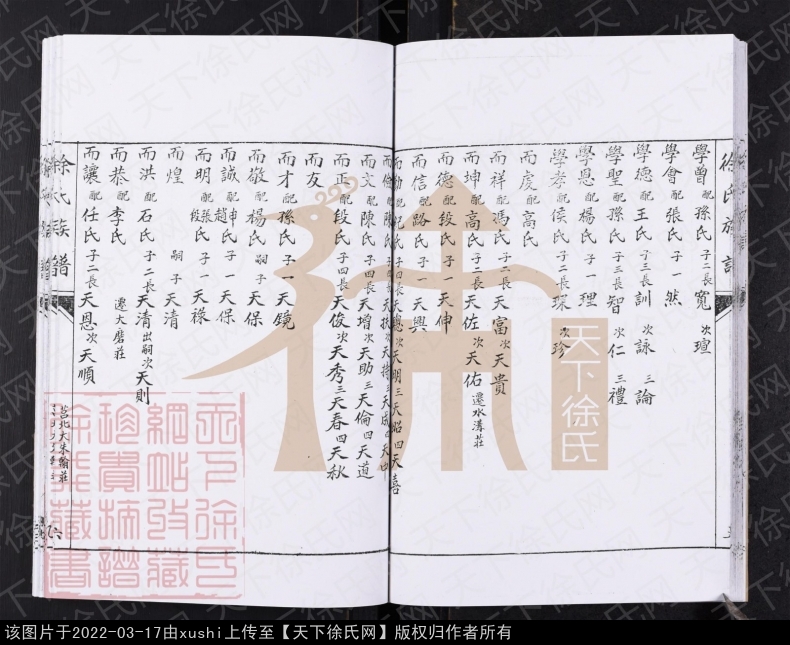 徐氏族譜
學曾配孫氏子二長寬次瑄
學會配張氏子一然
學德配王氏子三長訓次詠三論
學聖配孫氏子三長智次仁三禮
學恩配楊氏子一理
學孝配侯氏子二長琛次珍
而虔配高氏
而祥配馮氏子二長天富次天貴
而坤配高氏子二長天佐次天佑遷水溝莊
而德配段氏子一天伸
而信配路氏子一天興
天明三天昭四天喜
而文配陳氏子四長天增次天助三天倫四天道
而正配段氏子四長天俊次天秀三天春四天秋
而友
而才配孫氏子一天鏡
而敬配楊氏嗣子天保
而誠配申氏趙子一天保
而明配張氏段子一天祿
而煌嗣子天清
而洪配石氏子二長天清出嗣次天則
而恭配李氏遷大磨莊
而讓配任氏子二長天恩次天順
徐氏族譜
莒北大朱翰莊
六
天下徐氏
天下徐氏網站收藏珍貴摘譜徐氏藏書
天下徐氏网
该图片于2022-03-17由xushi上传至【天下徐氏网】版权归作者所有